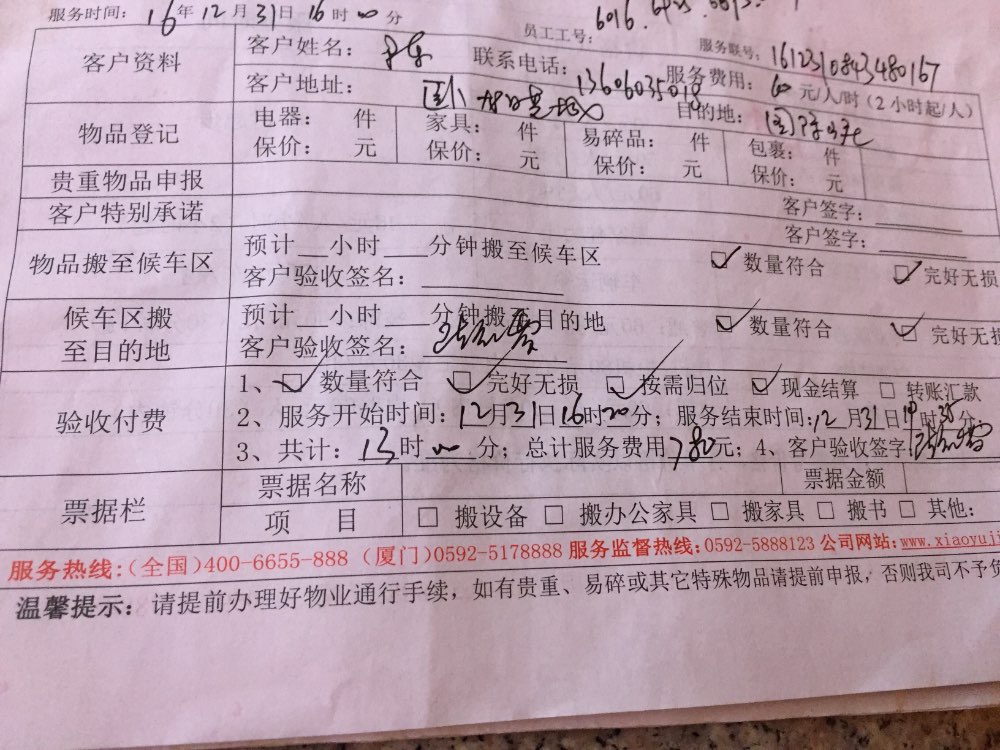 服务时间: 16年12月31日16时00分
员工工号:
服务联号: 1612310843480167
客户资料 客户姓名: 联系电话: 13606035018 服务费用: 60元/人/时(2小时起/人)
客户地址: 目的地:
物品登记 电器: 件 家具: 件 易碎品: 件 包裹: 件
保价: 元 保价: 元 保价: 元 保价: 元
贵重物品申报 客户签字:
客户特别承诺 客户签字:
物品搬至候车区 预计__小时___分钟搬至候车区 ☑数量符合 ☑完好无损
客户验收签名:
候车区搬至目的地 预计__小时___分钟搬至目的地 ☑数量符合 ☑完好无损
客户验收签名:
验收付费 1、☑数量符合 ☑完好无损 ☑按需归位 ☑现金结算 □转账汇款
2、服务开始时间:12月31日16时20分;服务结束时间:12月31日时35分
3、共计:13时00分;总计服务费用780元;4、客户验收签字:
票据栏 票据名称 票据金额
项 目 □搬设备 □搬办公家具 □搬家具 □搬书 □其他:
服务热线:(全国)400-6655-888 (厦门)0592-5178888 服务监督热线:0592-5888123 公司网站:www.xiaoyuji
温馨提示:请提前办理好物业通行手续,如有贵重、易碎或其它特殊物品请提前申报,否则我司不予